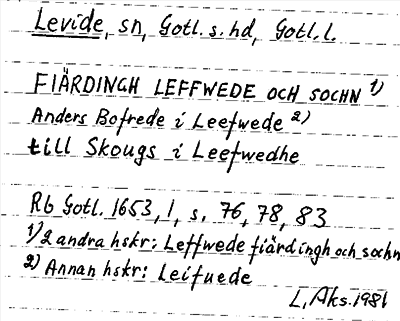 Levide, sn, Gotl. s. hd, Gotl. l.
FIÄRDINGH LEFFWEDE OCH SOCHN 1)
Anders Bofrede i Leefwede 2)
till Skougs i Leefwedhe
Rb Gotl. 1653, 1, s. 76, 78, 83
1) 2 andra hskr: Leffwede fiärdingh och sochn
2) Annan hskr: Leifuede
L, Aks. 1981